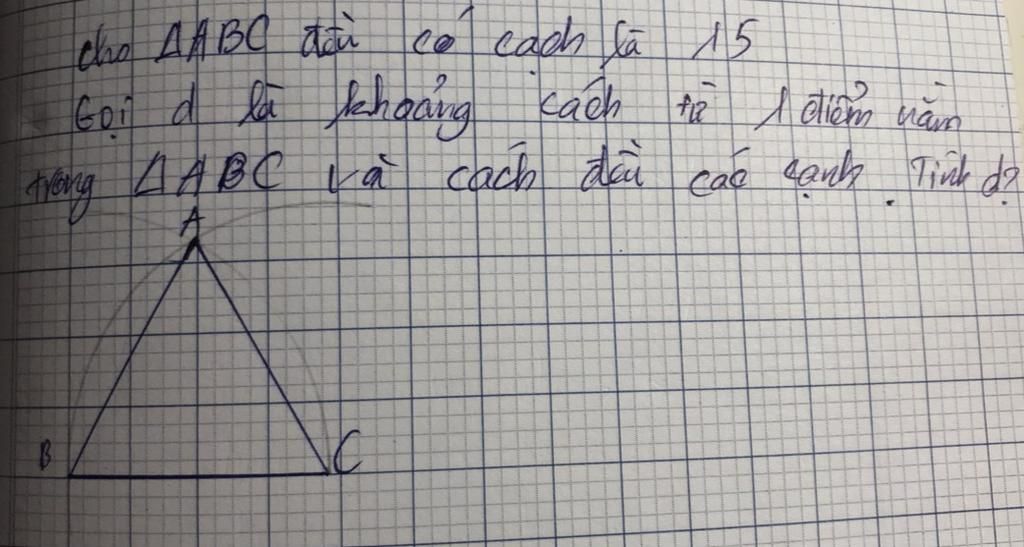 cho ΔABC đều có cạch là 15
Gọi d là khoảng cách từ 1 điểm nằm
trong ΔABC và cách đều các cạnh. Tính d?
A
B
C